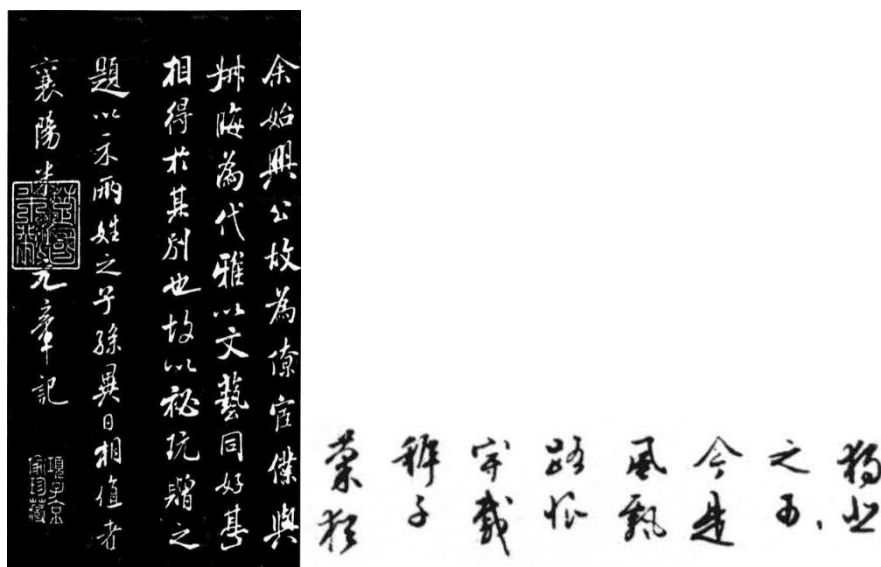 余始興公故為僚宦僕與
叔晦為代雅以文藝同好甚
相得於其別也故以祕玩贈之
題以示兩姓之子孫異日相值者
襄陽米黻元章記
項子京家珍藏
之
今是
風飄
路
子